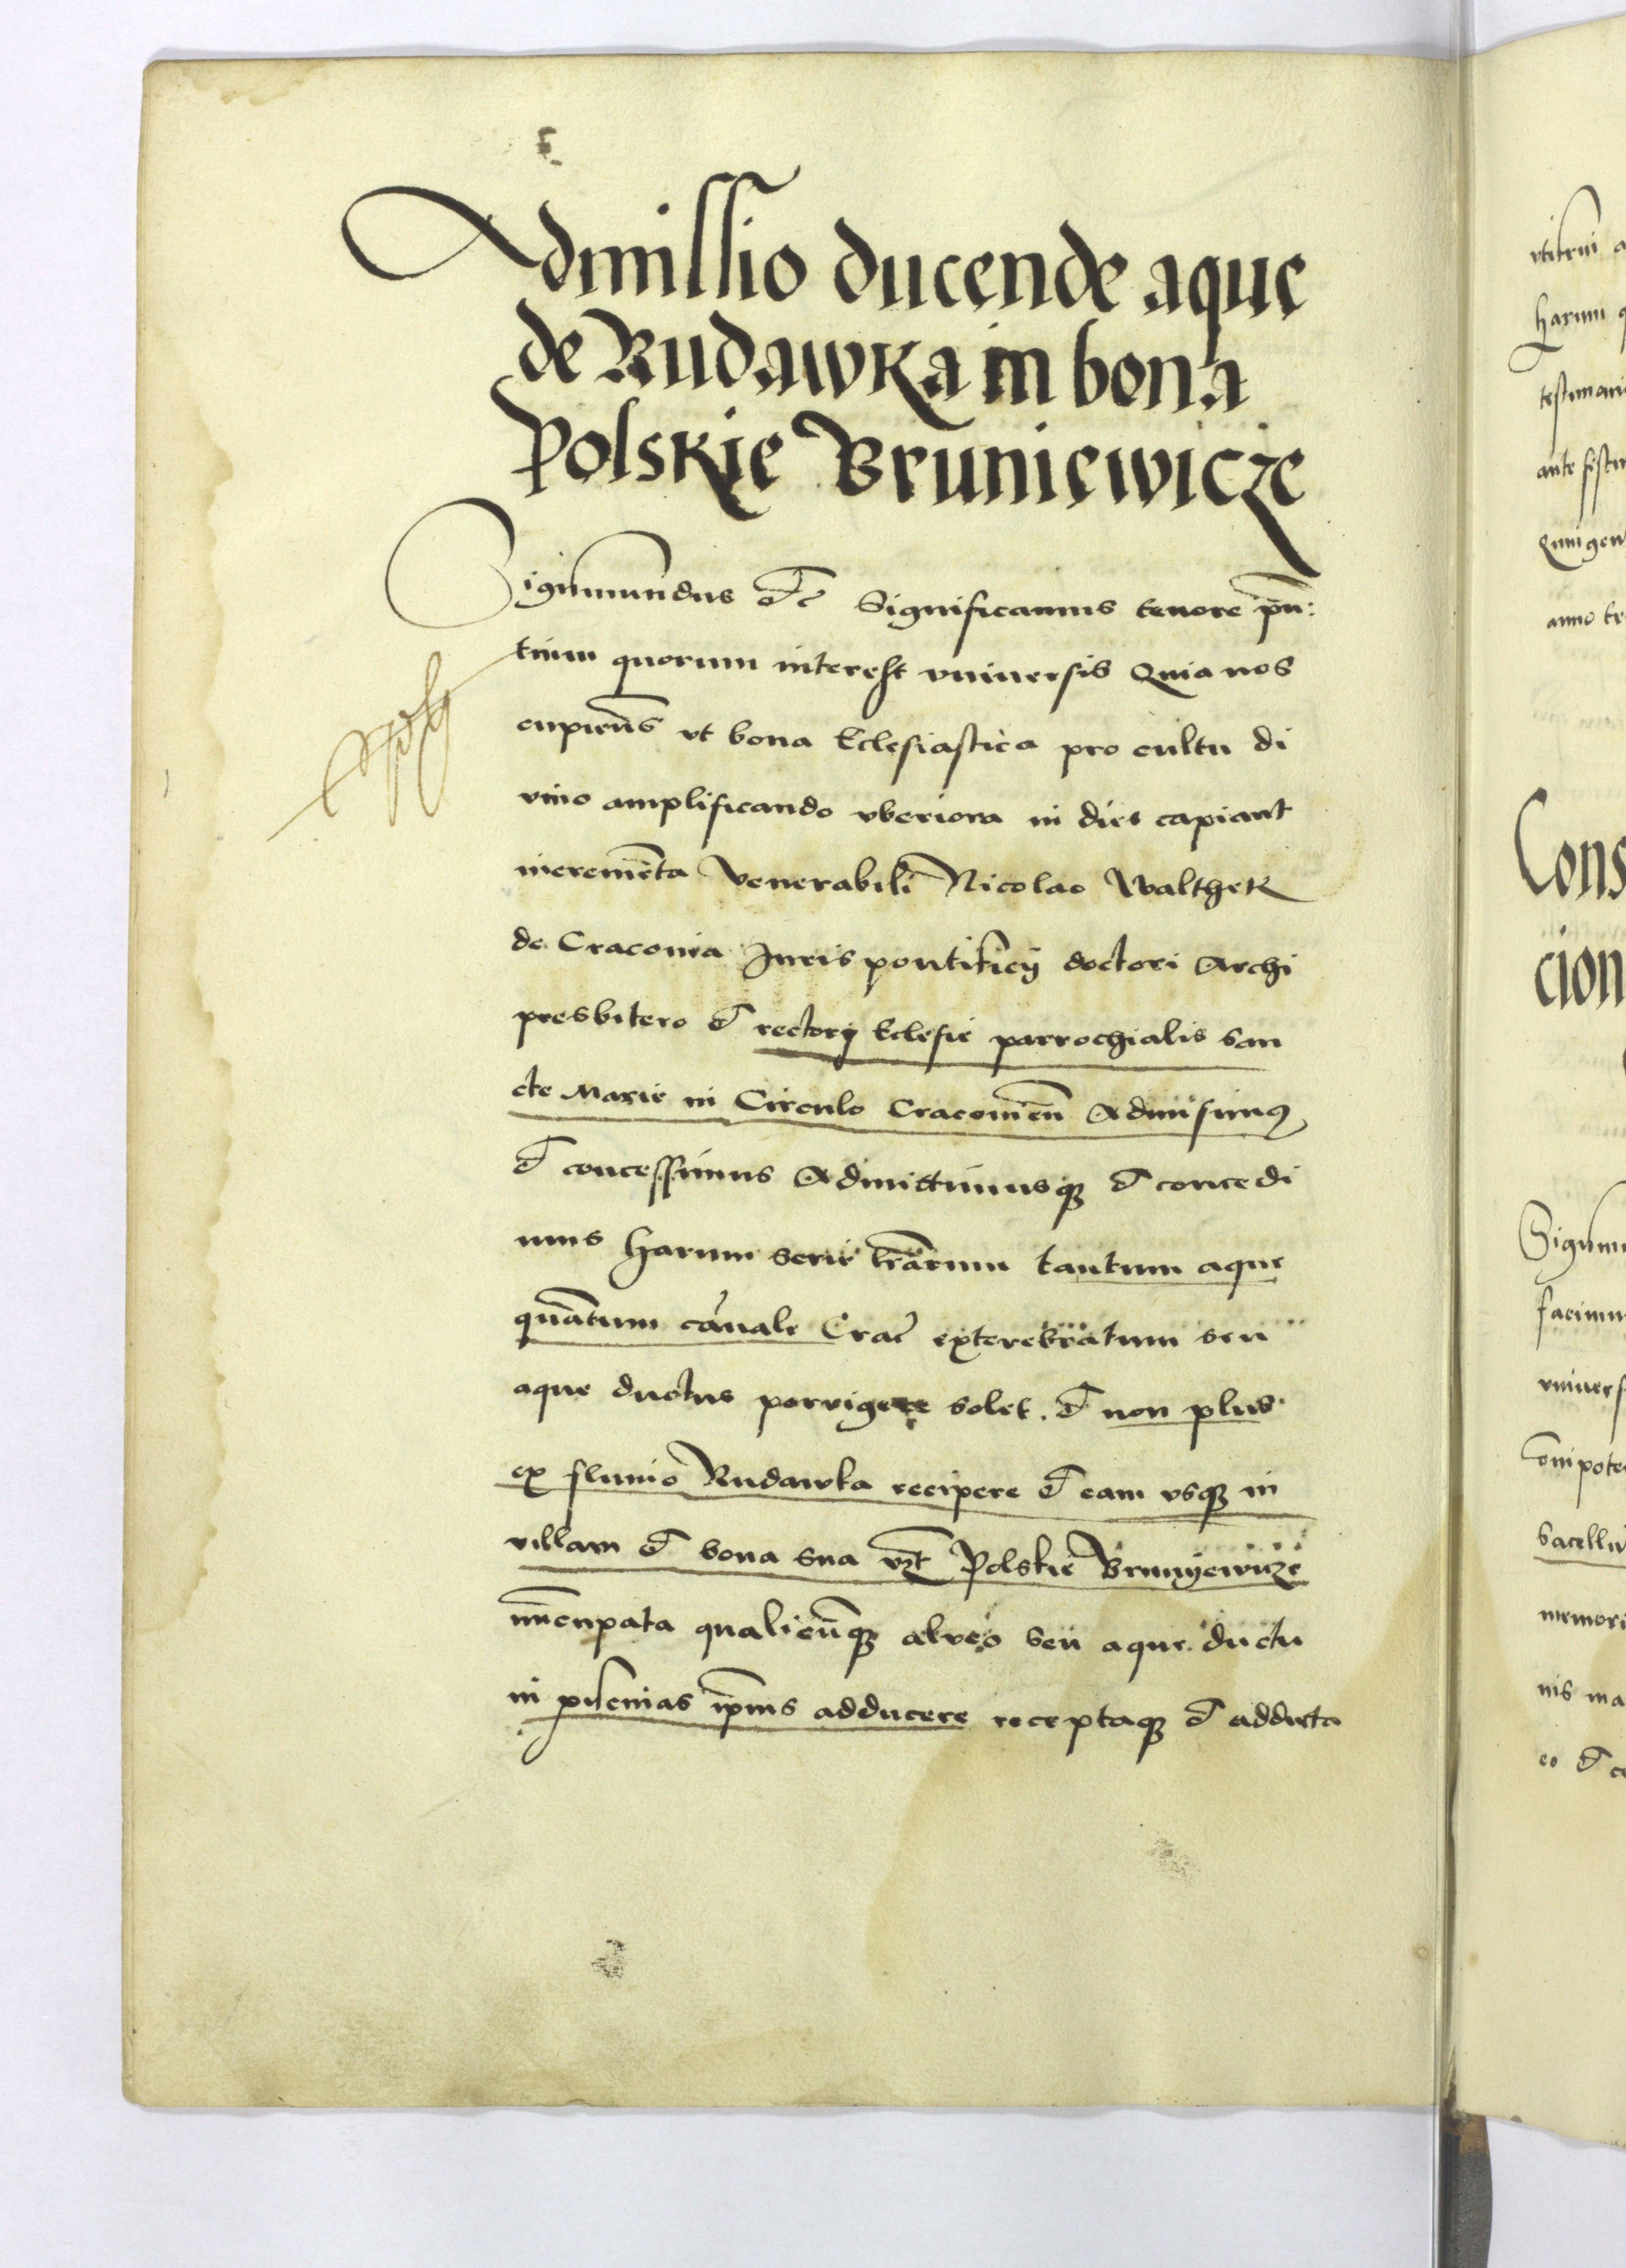 Admissio ducende aque
de Rudawka in bona
Polskie Bruniewicze
Sigismundus etc Significamus tenore pñ:
tium quorum interest vniuersis Quia nos
cupiens̃ vt bona Eclesiastica pro cultu di
vino amplificando vberiora in dies capiant
incremēta Venerabili Nicolao Walther
de Craconia Juris pontificij doctori Archi
presbitero et rectorij Eclesie parrochialis san
cte Marie in Circulo Cracouieñ Admisimus
et concessimus Admittimusq3 et concedi
mus harum serie lr̃arum tantum aque
quãtum canale Crac̃ exterebratum seu
aque ductus porrigere solet. et non plus
ex fluuio Rudawka recipere et eam vsq3 in
villam et bona sua vz̃t Polskie Brunyewicze
nũcupata qualicũq3 alveo seu aque ductu
in piscinas ip̃ius adducere receptaq3 et adducta
vtifrui
harum
ante
anno
Cons
cion
Sigism
facimu
vniuers
Omipote
Sacellu
memori
nis ma
eo et